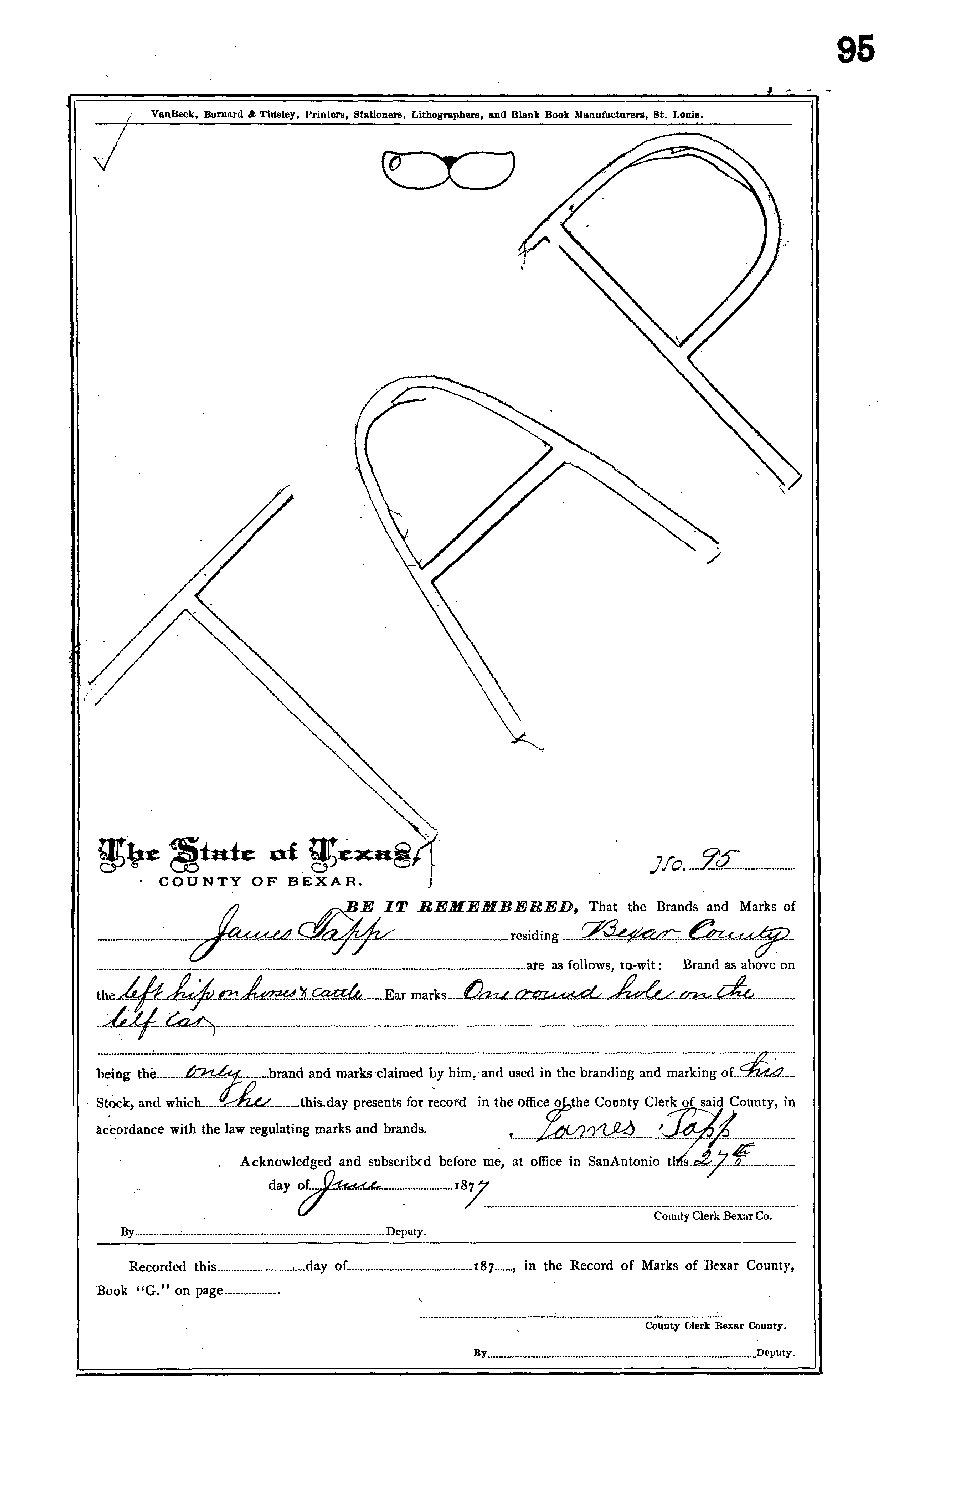 95
VanBeck, Barnard & Tinsley, Printers, Stationers, Lithographers, and Blank Book Manufacturers, St. Louis.
T A P
The State of Texas,
COUNTY OF BEXAR.
No. 95
BE IT REMEMBERED, That the Brands and Marks of
James Tapp residing Bexar County
are as follows, to-wit: Brand as above on
the left hip on horses & cattle Ear marks One round hole on the
left Ear
being the only brand and marks claimed by him, and used in the branding and marking of his
Stock, and which he this day presents for record in the office of the County Clerk of said County, in
accordance with the law regulating marks and brands. James Tapp
Acknowledged and subscribed before me, at office in SanAntonio this 27th
day of June 1877
County Clerk Bexar Co.
By Deputy.
Recorded this day of 187 , in the Record of Marks of Bexar County,
Book "G." on page .
County Clerk Bexar County.
By Deputy.